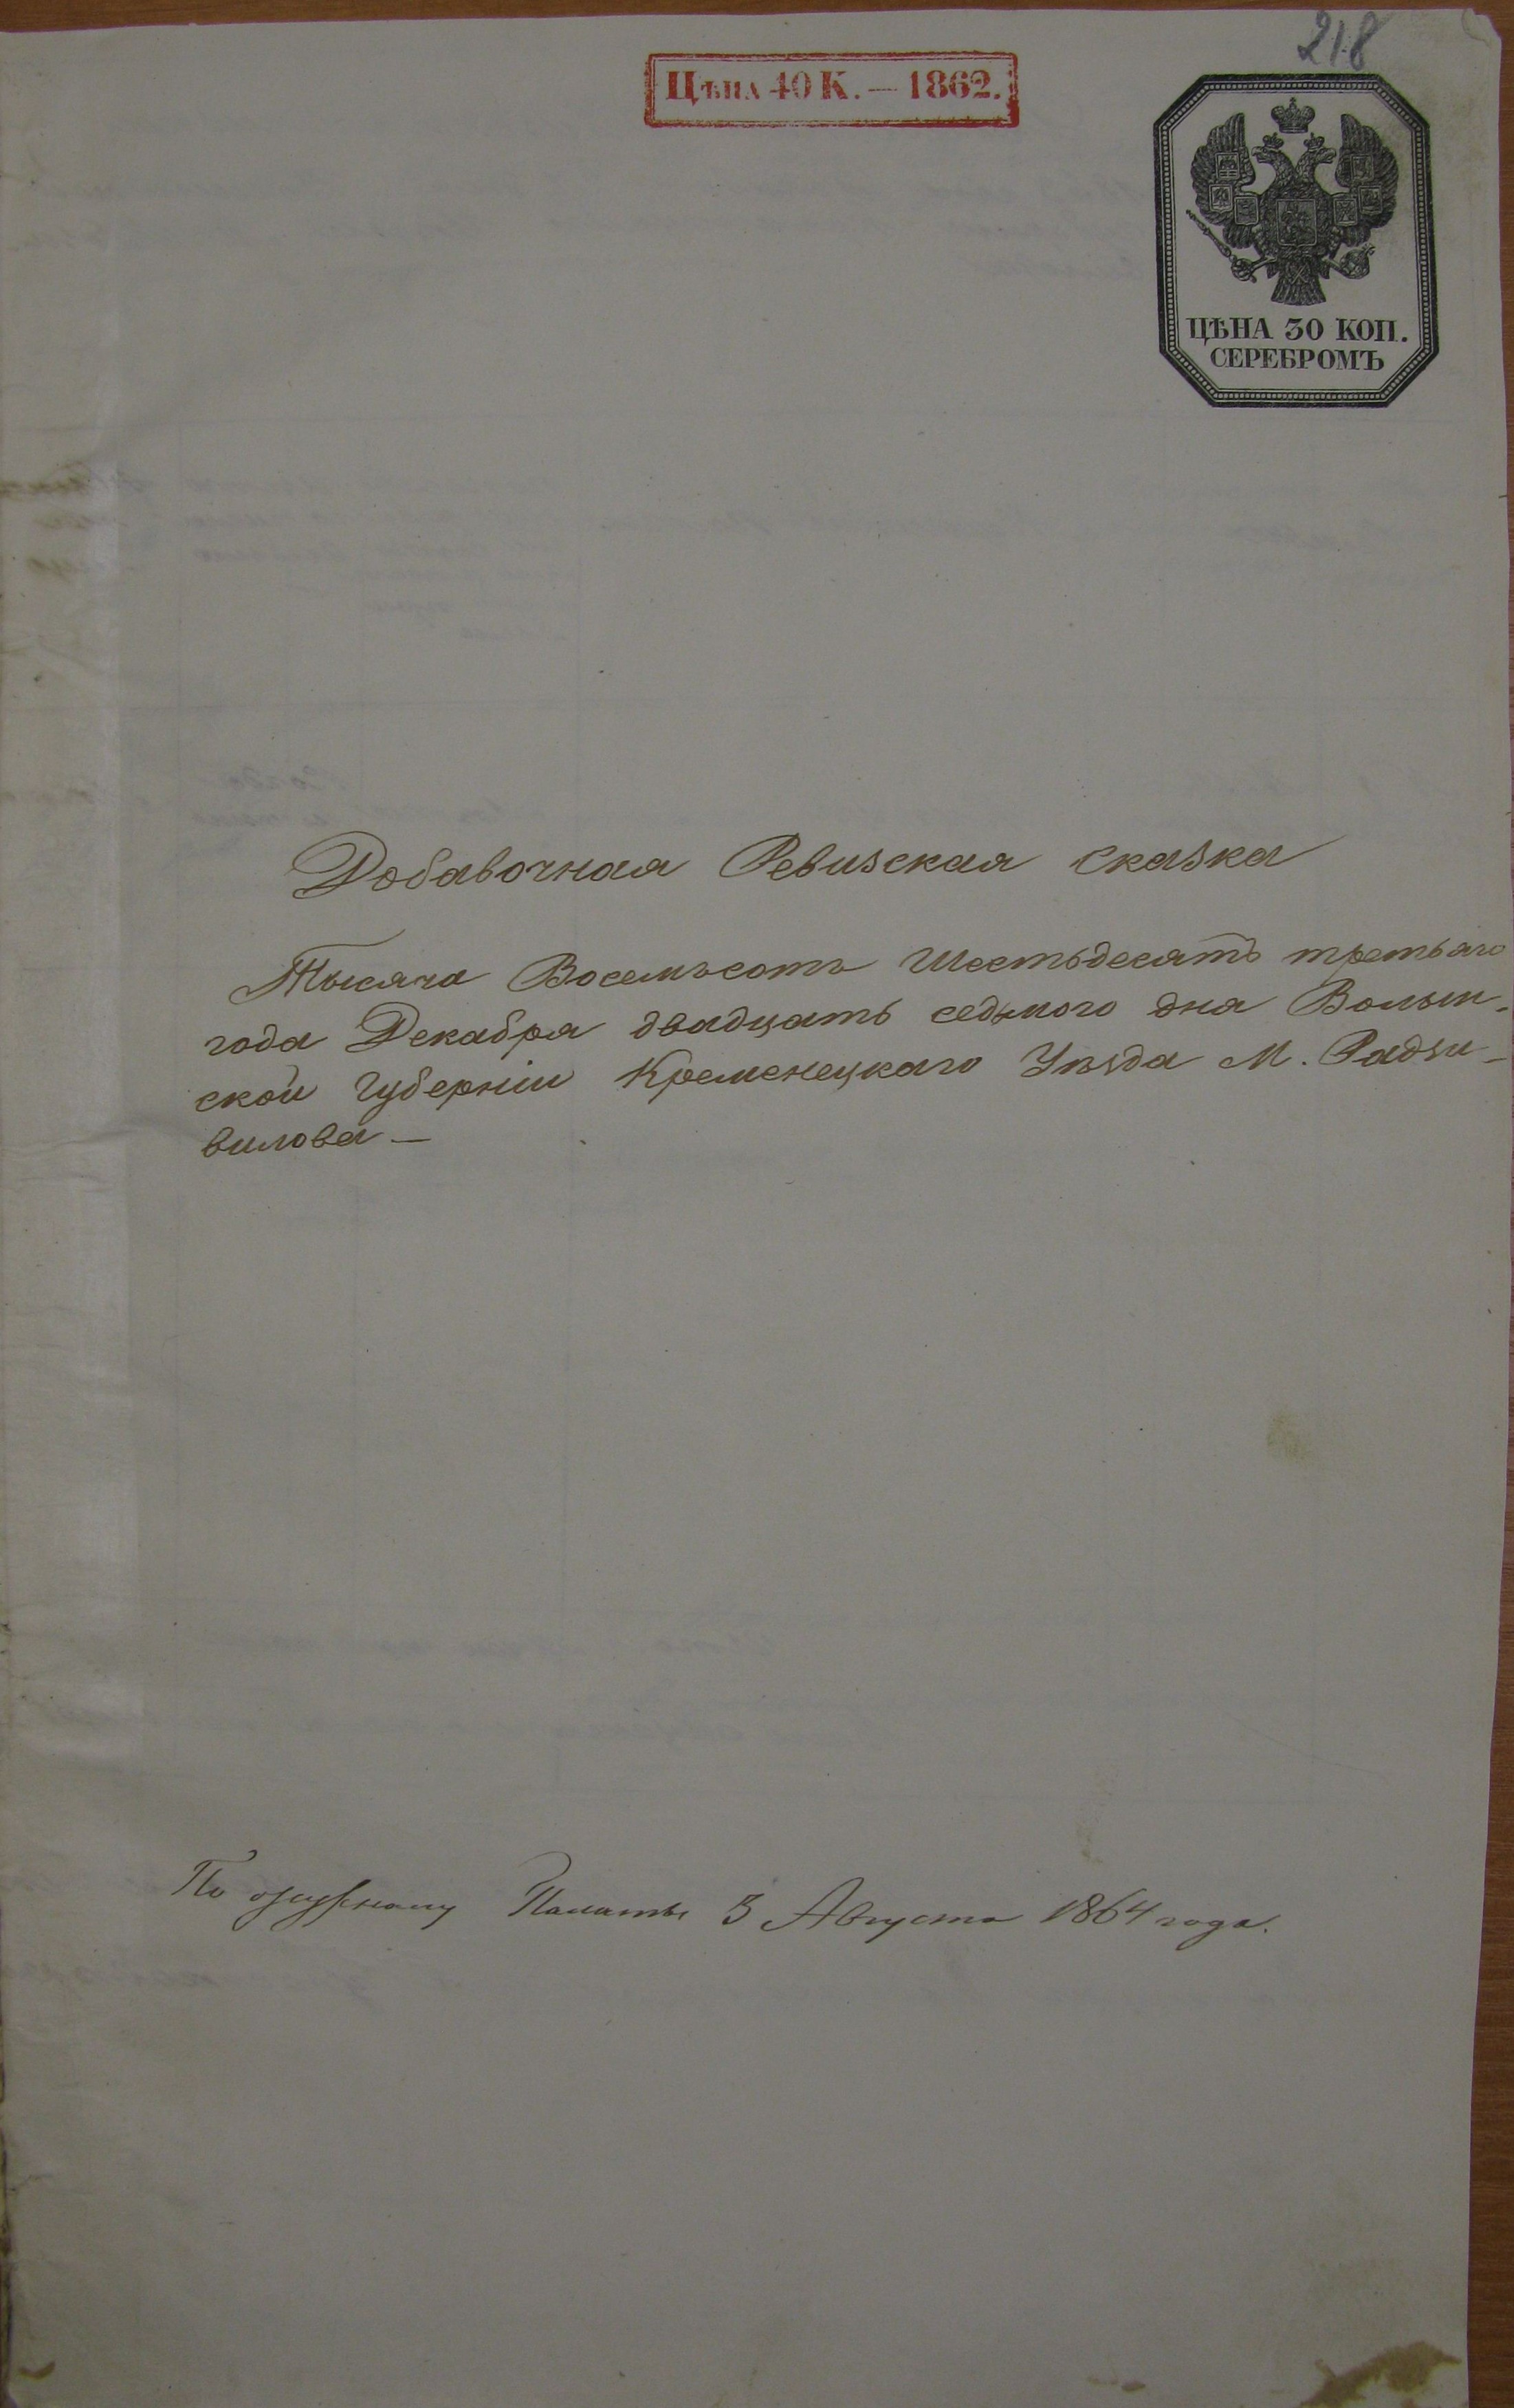 218
Цѣна 40 К. — 1862.
ЦѢНА 30 КОП.
СЕРЕБРОМЪ
Добавочная Ревизская сказка
Тысяча Восемьсотъ Шестьдесятъ третьяго
года Декабря двадцать седьмого дна Волын-
ской Губерніи Кременецкаго Уѣзда М. Радзи-
вилова —
По Палаты 3 Августа 1864 года.